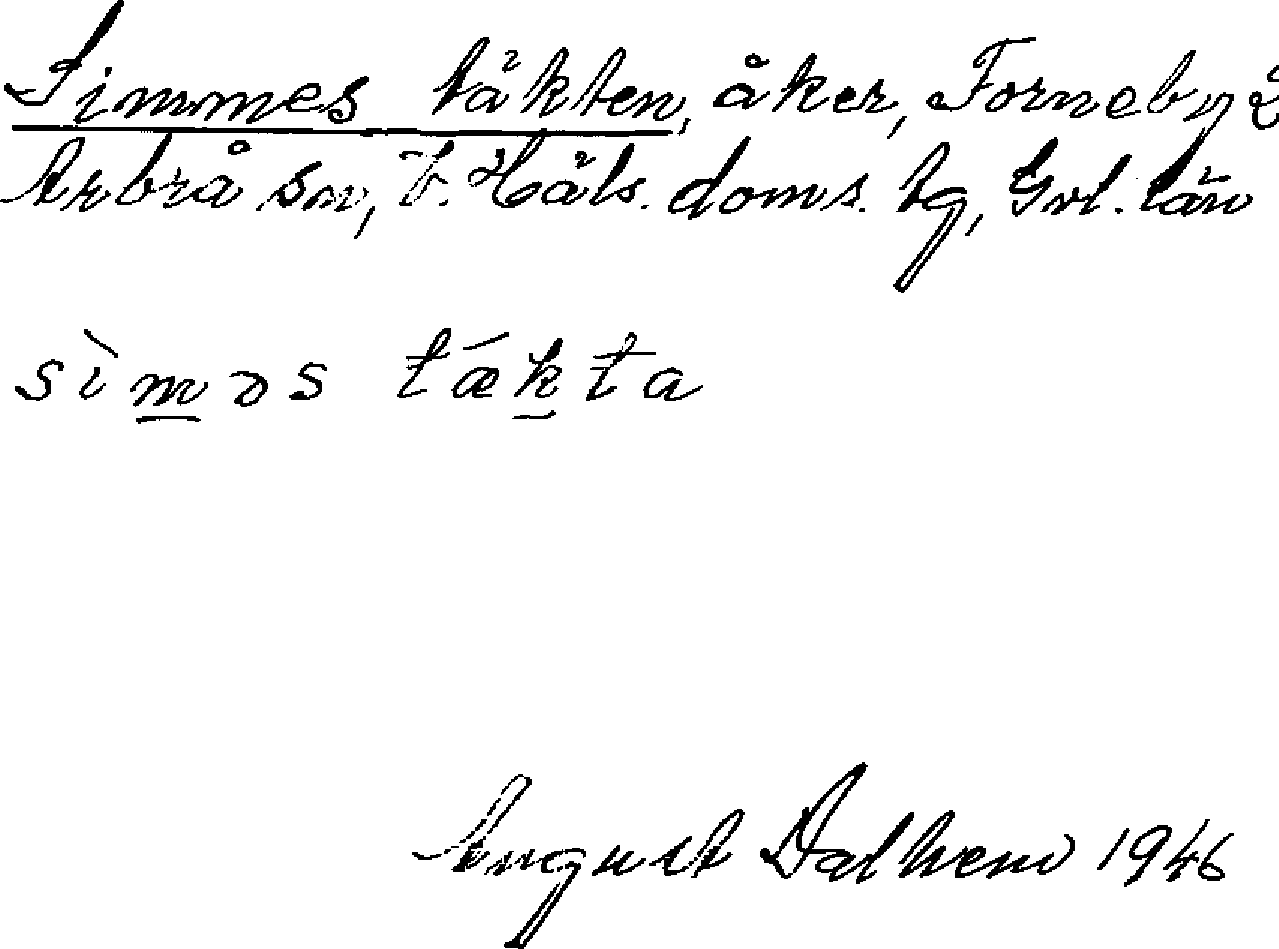 Simmes täkten, åker, Forneby 2
Arbrå sn, V. Häls. doms. tg, Gvl. län
sìməs tǽkta
August Dalhem 1946